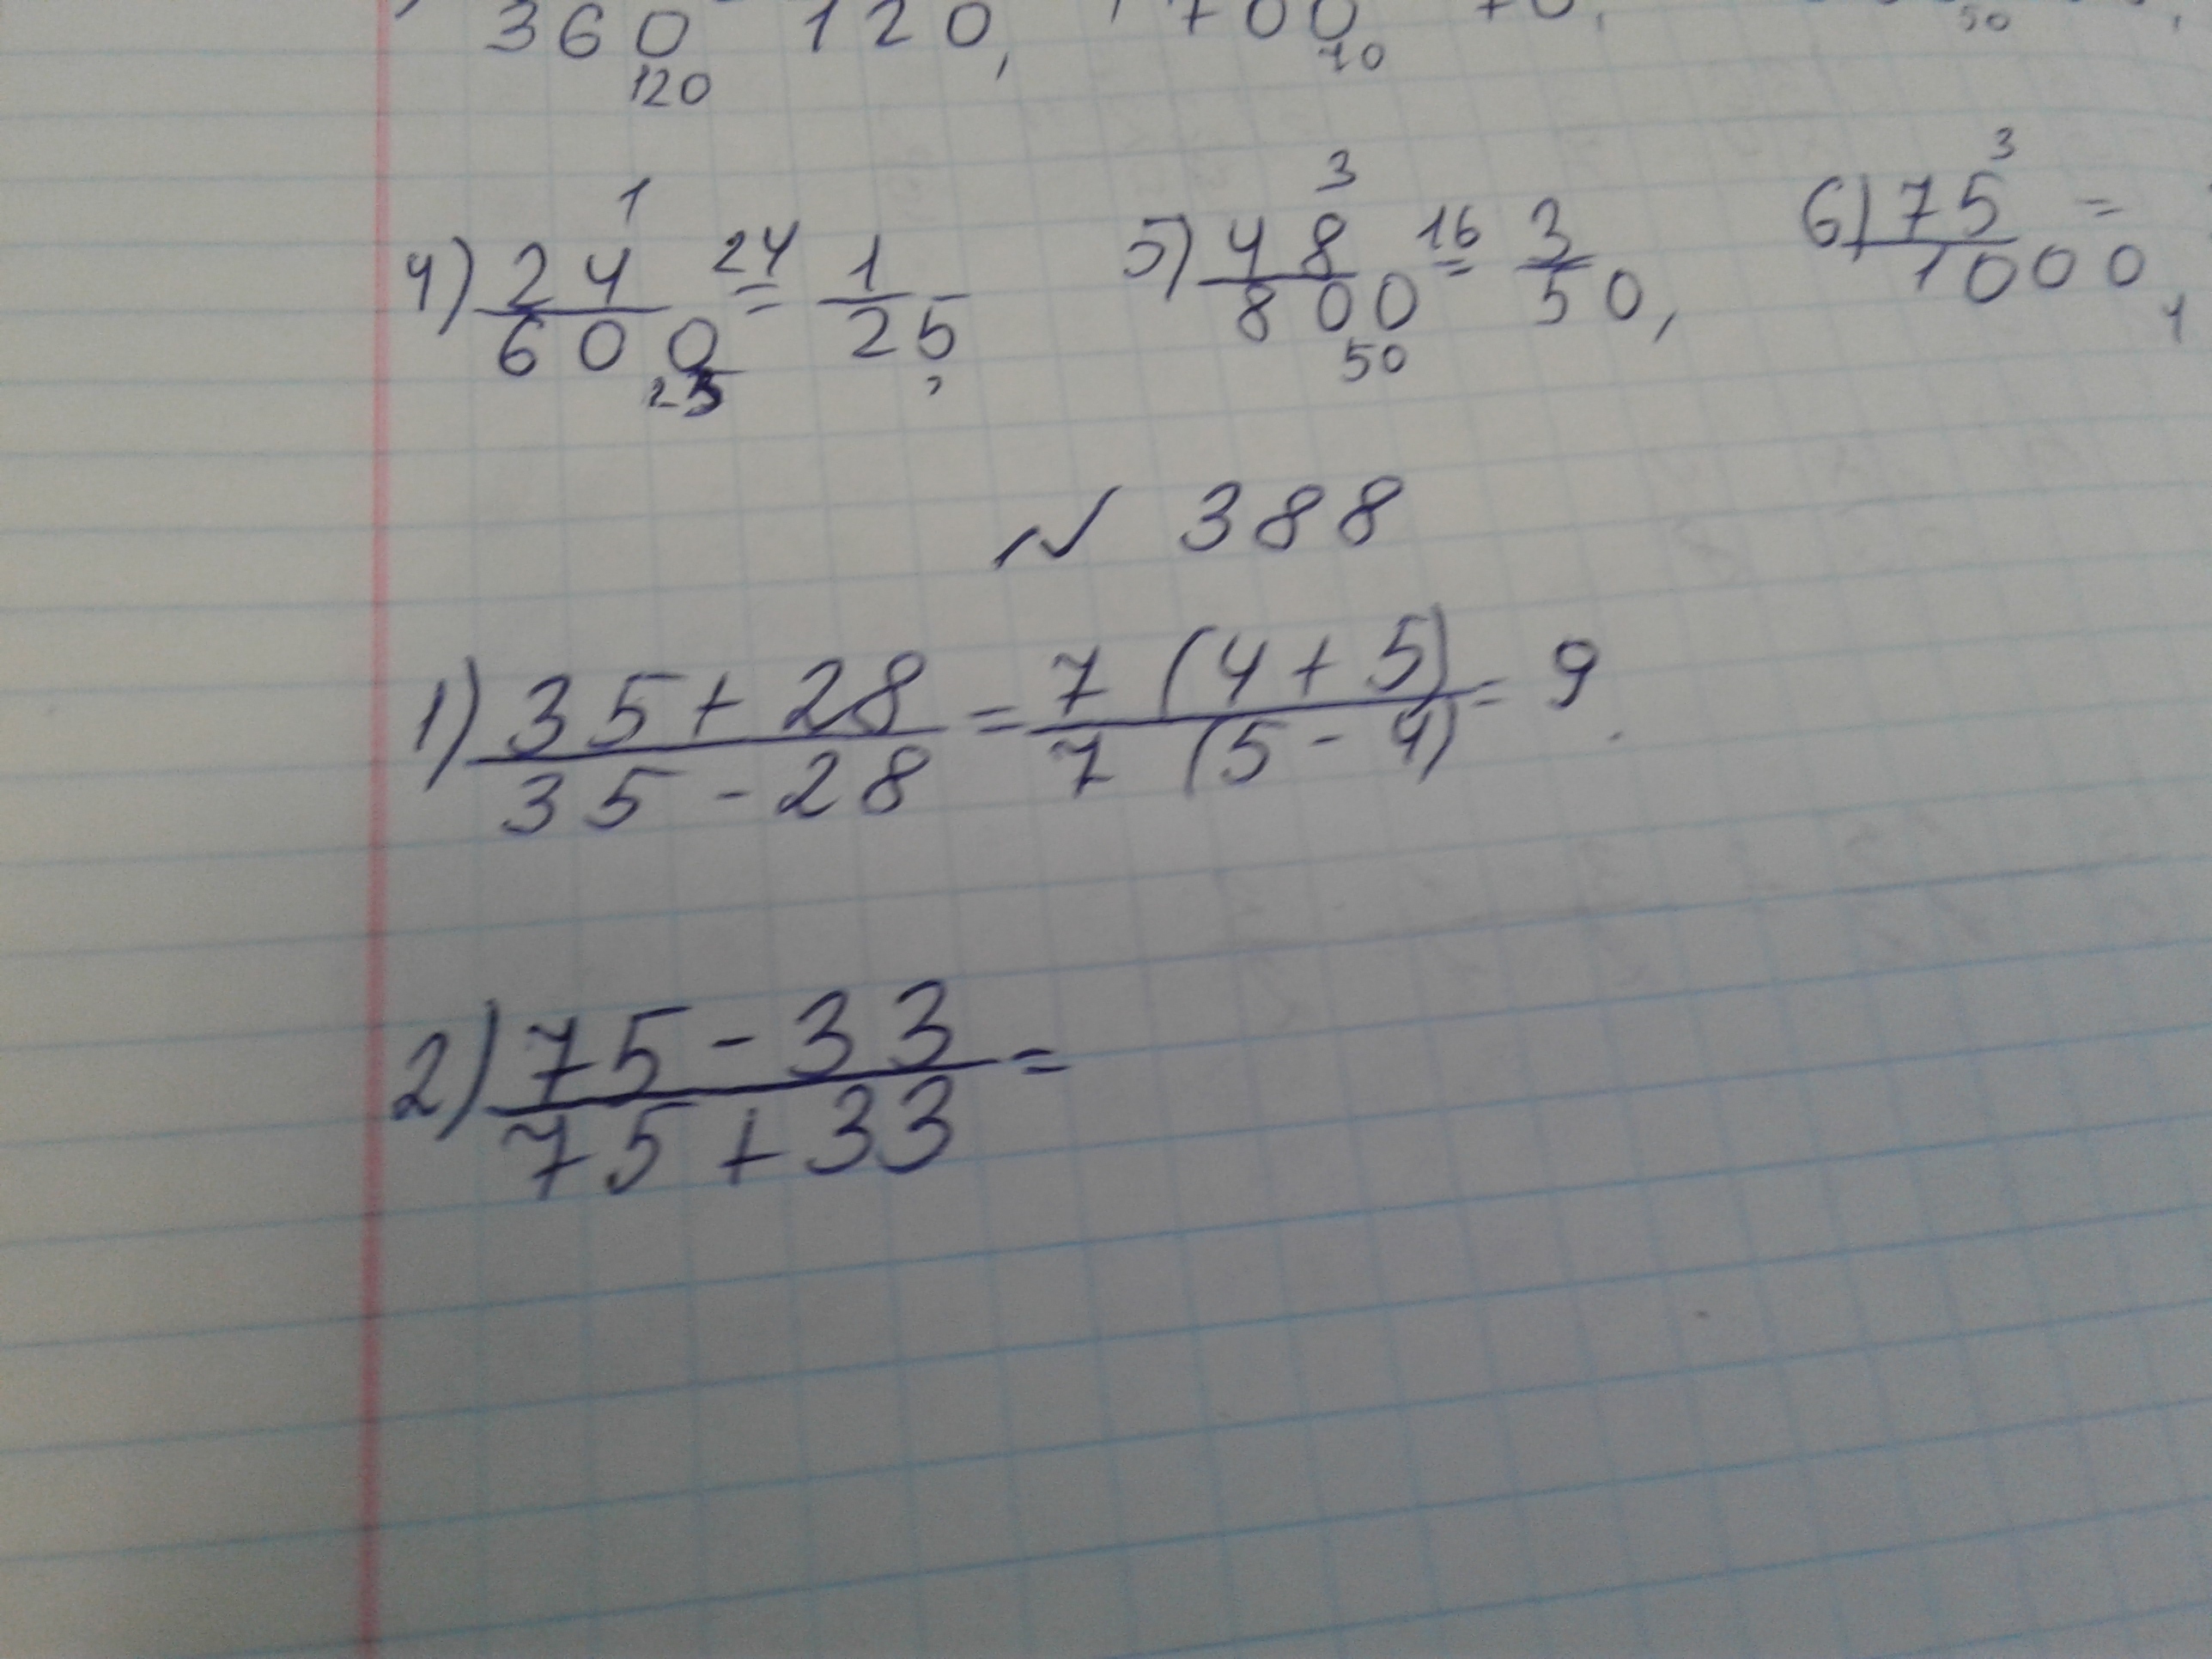 360 120,
120 70
4) 24/600 = 1/25, 5) 48/800 = 3/50, 6) 75/1000 =
№ 388
1) (35+28)/(35-28) = 7(4+5)/7(5-4) = 9.
2) (75-33)/(75+33) =